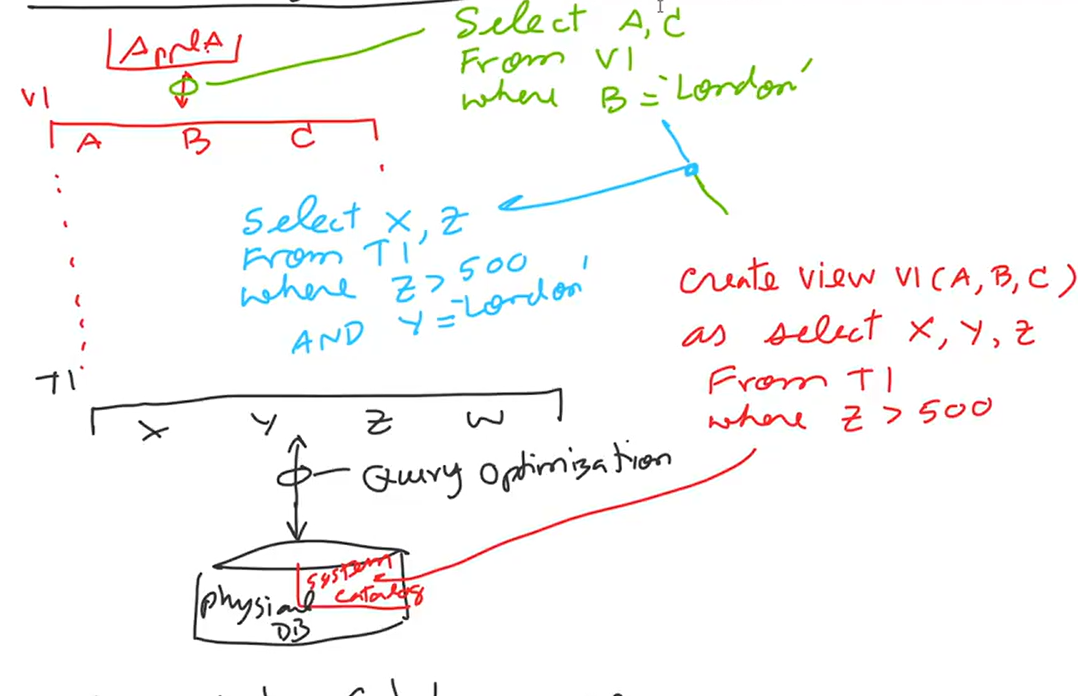 Select A, C
From V1
where B = 'London'
Appl A
V1
A B C
Select X, Z
From T1
where Z > 500
AND Y = 'London'
Create view V1 (A, B, C)
as select X, Y, Z
From T1
where Z > 500
T1
X Y Z W
Query Optimization
system
catalog
physical
DB